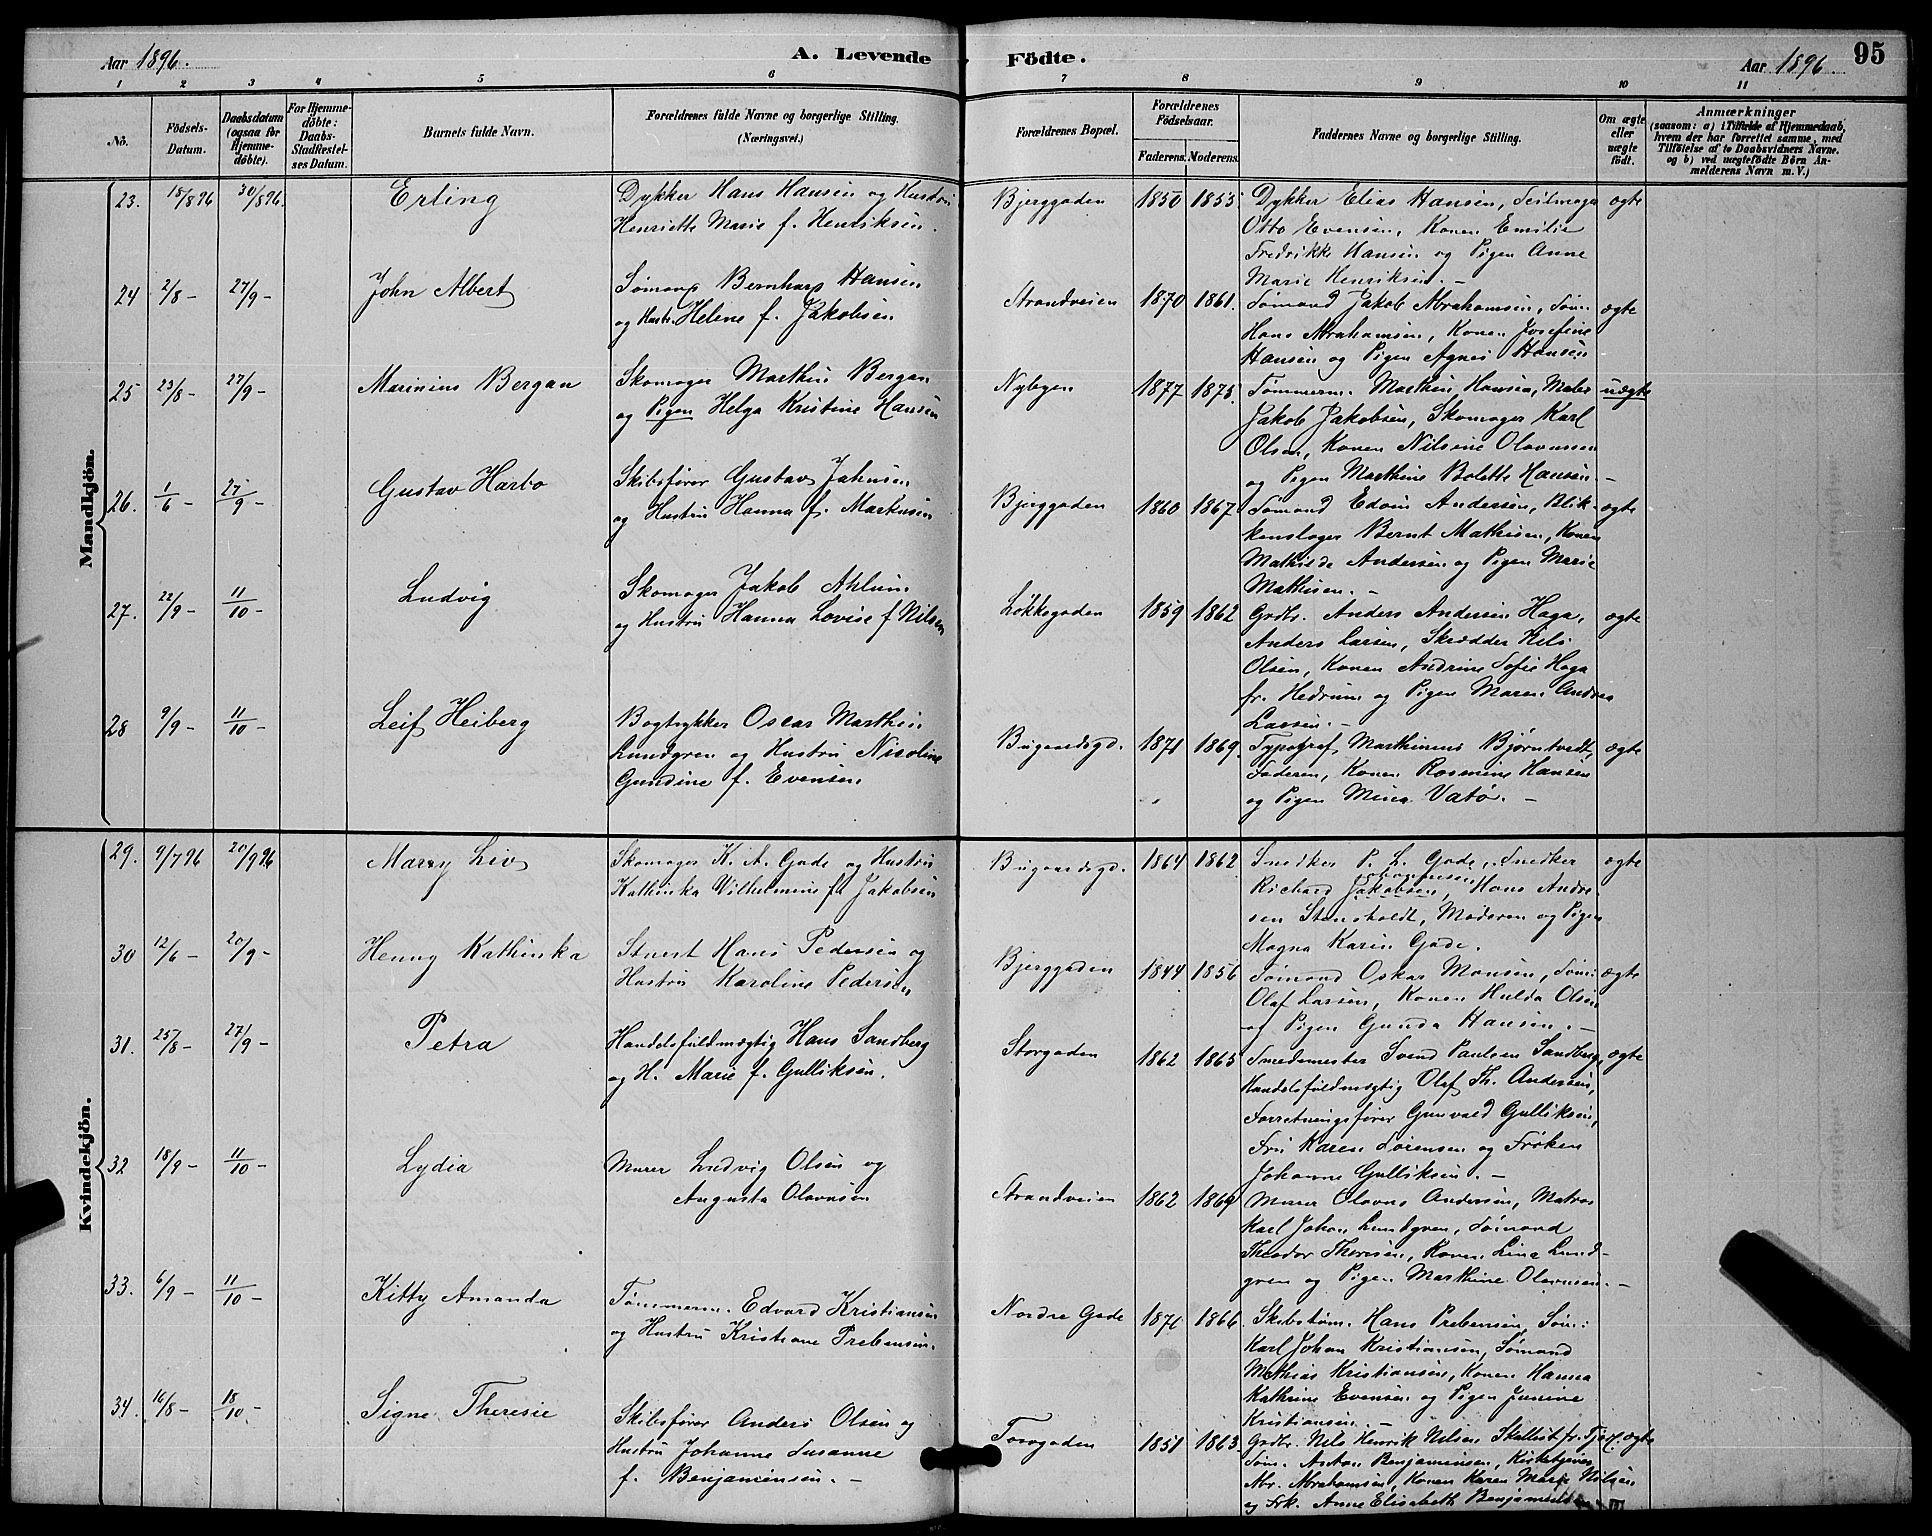 Aar 1896.
A. Levende
Födte.
Aar 1896
95
1 2 3 4 5 6 7 8 9 10 11
No.
Födsels-Datum.
Daabsdatum (ogsaa for Hjemmedöbte).
For Hjemmedöbte: Daabs-Stadfestelses Datum.
Barnets fulde Navn.
Forældrenes fulde Navne og borgerlige Stilling.
(Næringsvei.)
Forældrenes Bopæl.
Forældrenes Födselsaar.
Faderens. Moderens.
Faddernes Navne og borgerlige Stilling.
Om ægte eller uægte födt.
Anmærkninger
(saasom: a) i Tilfælde af Hjemmedaab, hvem der har forrettet samme, med Tilföielse af to Daabsvidners Navne. og b) ved uægtefödte Börn Anmelderens Navn m. V.)
Mandkjön.
23. 18/8 96 30/8 96. Erling
Dykker Hans Hansen og Hustru
Henriette Marie f. Henriksen.
Bjerggaden 1850 1853
Dykker Elias Hansen, Seilmager
Otto Evensen, Konen Emilie
Fredrikke Hansen og Pigen Anne
Marie Henriksen. –
ægte
24 2/8 – 27/9 – John Albert
Sømand Bernhard Hansen
og Hustr. Helene f. Jakobsen
Strandveien 1870 1861.
Sømand Jakob Abrahamsen, Søm.
Hans Abrahamsen, Konen Josefine
Hansen og Pigen Agnes Hansen
ægte
25 23/8 – 27/9 – Marinius Bergan
Skomager Marthin Bergan
og Pigen Helga Kristine Hansen
Nybyen 1877 1875.
Tømmerm. Marthin Hansen, Maler
Jakob Jakobsen, Skomager Karl
Olsen, Konen Nilsine Olavussen
og Pigen Marthine Bolette Hansen. –
uægte
26. 1/6 – 27/9 – Gustav Harbo
Skibsfører Gustav Jahnsen
og Hustru Hanna f. Markusen
Bjerggaden 1860 1867
Sømand Edvin Andersen, Blik-
kenslager Bernt Mathisen, Konen
Mathilde Andersen og Pigen Marie
Mathisen. –
ægte
27. 22/9 – 11/10 – Ludvig
Skomager Jakob Ahlun
og Hustru Hanna Lovise f Nilsen
Løkkegaden 1859 1862
Grdbr. Anders Andersen Haga,
Anders Larsen, Skrædder Nels
Olsen, Konen Andrine Sofie Haga
fr. Hedrum og Pigen Maren Andrea
Larsen. –
ægte
28 9/9 – 11/10 – Leif Heiberg
Bogtrykker Oscar Marthin
Lundgren og Hustru Nicoline
Gundine f. Evensen
Bugaardsgd. 1871 1869.
Typograf Marthinius Bjørntvedt,
Faderen, Konen Rosmine Hansen
og Pigen Mina Vatø. –
ægte
Kvindekjön.
29. 9/7 96 20/9 96 Marry Liv
Skomager K. A. Gade og Hustru
Kathinka Vilhelmine f. Jakobsen
Bugaardsgd. 1864 1862
Snedker P. L. Gade, Snedker
Richard Jakobsen, Hans Andre-
sen Stensholdt, Moderen og Pigen
Magna Karin Gade.
ægte
30 12/6 – 20/9 – Henny Kathinka
Stuert Hans Pedersen og
Hustru Karoline Pedersen
Bjerggaden 1844 1856
Sømand Oskar Monsen, Søm:
Olaf Larsen, Konen Hulda Olsen
og Pigen Gunda Hansen. –
ægte
31. 25/8 – 27/9 – Petra
Handelsfuldmægtig Hans Sandberg
og H. Marie f. Gulliksen.
Storgaden 1862 1865
Smedemester Svend Paulsen Sandberg,
Handelsfuldmægtig Olaf Th. Andersen,
Forretningsfører Gunvald Gulliksen,
Fru Karen Sørensen og Frøken
Johanne Gulliksen. –
ægte
32 18/9 – 11/10 – Lydia
Murer Ludvig Olsen og
Augusta Olavusen
Strandveien 1862 1869
Murer Olavus Andersen, Matros
Karl Johan Lundgren, Sømand
Theodor Thoresen, Konen Lina Lund-
gren og Pigen Marthine Olavusen. –
33. 6/9 – 11/10 – Kitty Amanda
Tømmerm. Edvard Kristiansen
og Hustru Kristiane Prebensen.
Nordre Gade 1871 1866
Skibstøm. Hans Prebensen, Søm:
Karl Johan Kristiansen, Sømand
Mathias Kristiansen, Konen Hanna
Kathrine Evensen og Pigen Junine
Kristiansen. –
34. 16/8 – 18/10 – Signe Theresie
Skibsfører Anders Olsen og
Hustru Johanne Susanne
f. Benjaminsen. –
Torvgaden 1851 1863.
Grdbr. Nils Henrik Nilsen Skallist fr. Tjød.
Søm. Anton Benjaminsen, Kirketjener
Abr. Abrahamsen, Konen Karen Marie Nilsen
og Frk. Anne Elisabeth Benjaminsen
ægte